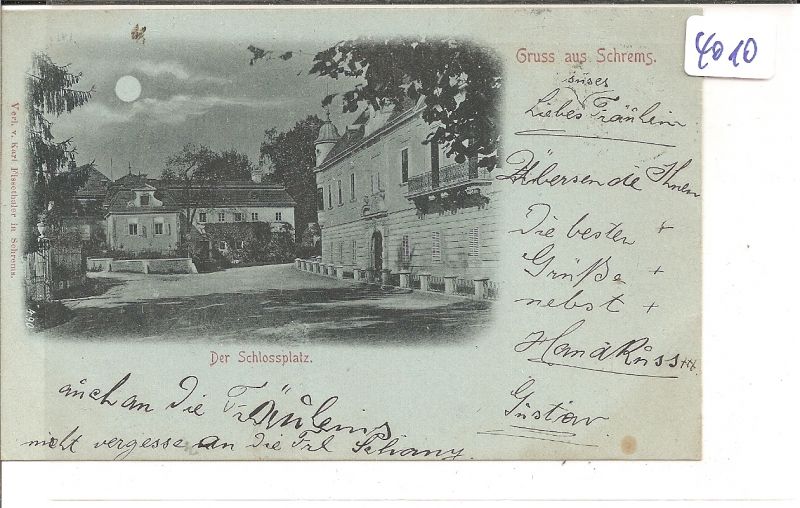 4010
Gruss aus Schrems.
süses
Liebes Fräulein
Übersende Ihnen
Die besten +
Grüße +
nebst +
HandKuss +++
Gustav
Verl. v. Karl Fissethaler in Schrems.
Der Schlossplatz.
auch an die Fräuleins
nicht vergesse an die Frl